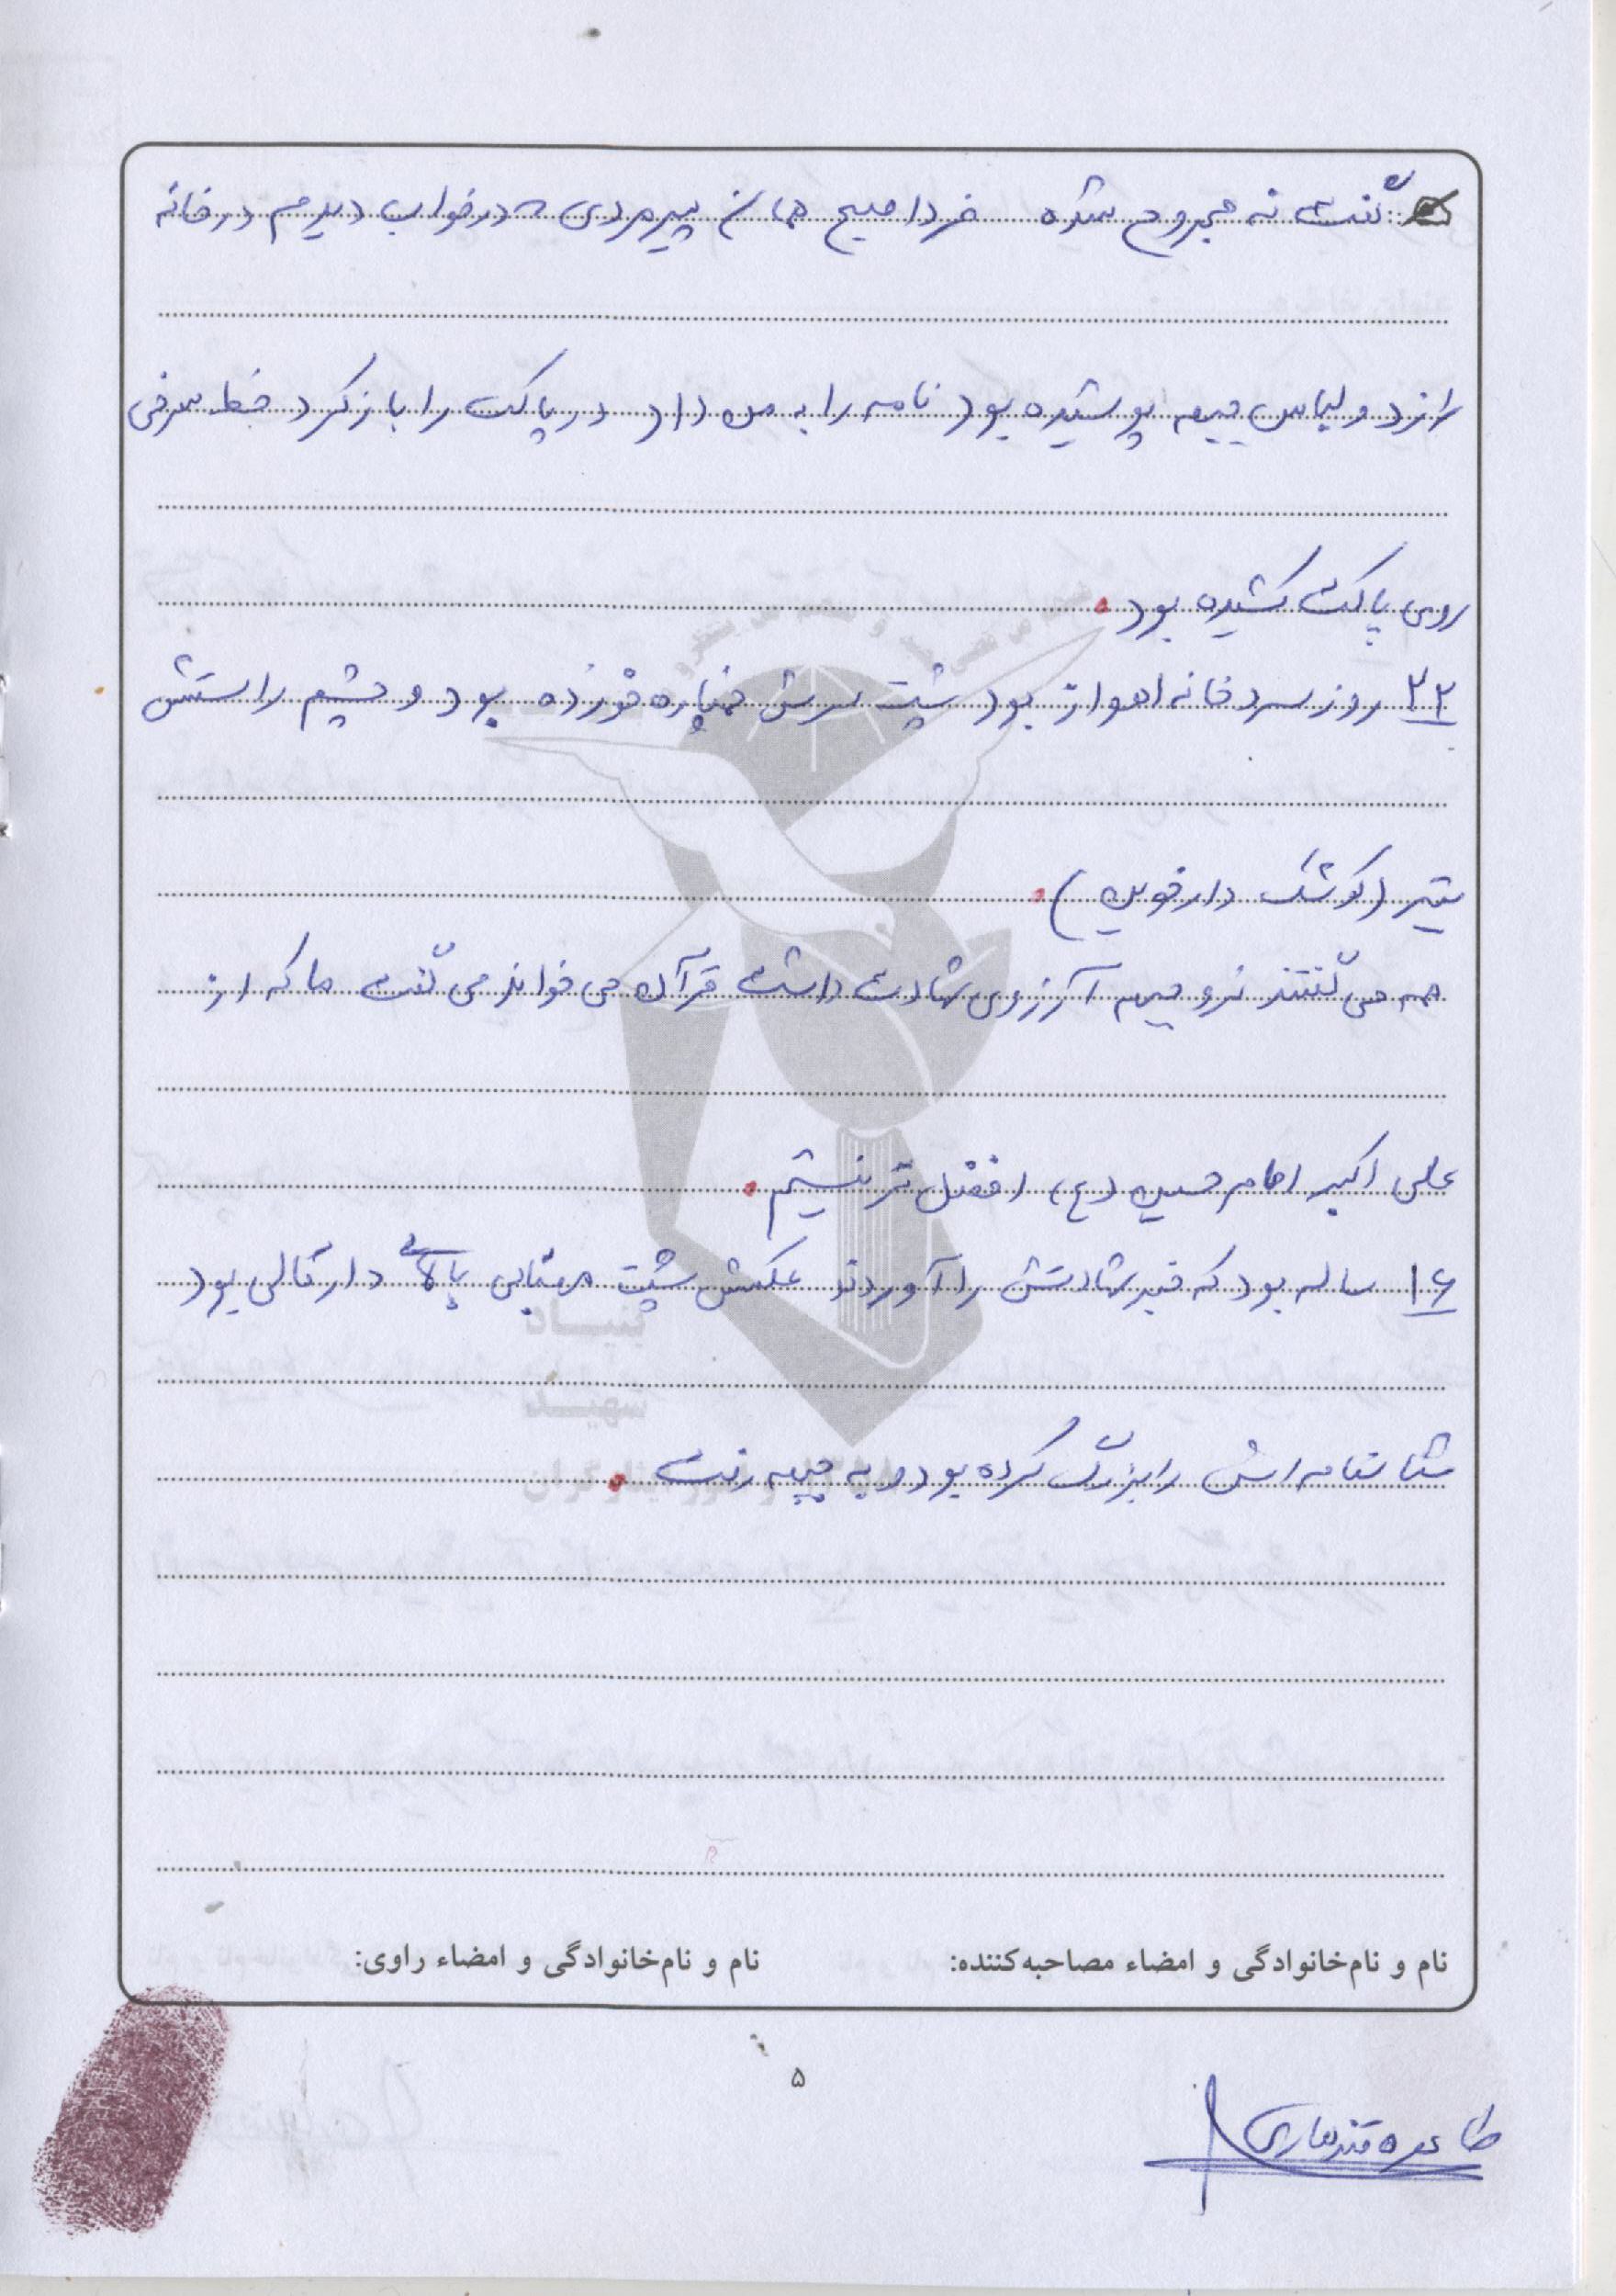 گفت نه مجروح شده فردا صبح همان پیرمردی که در خواب دیدم در خانه
را زد و لباس جبهه پوشیده بود نامه را به من داد در پاکت را باز کرد خط سرخی
روی پاکت کشیده بود.
۲۲ روز سردخانه اهواز بود پشت سرش خمپاره خورده بود و چشم راستش
تیر (کوشک دارخوین).
همه می گفتند نرو جبهه آرزوی شهادت داشت قرآن می خواند می گفت ما که از
علی اکبر امام حسین (ع) افضل تر نیستیم.
۱۶ ساله بود که خبر شهادتش را آوردند عکسش پشت مهتابی بالای دار قالی بود
شناسنامه اش را بزرگ کرده بود و به جبهه رفت.
بنیاد
شهید
نام و نام‌خانوادگی و امضاء مصاحبه‌کننده: نام و نام‌خانوادگی و امضاء راوی:
۵
طاهره قندهاری